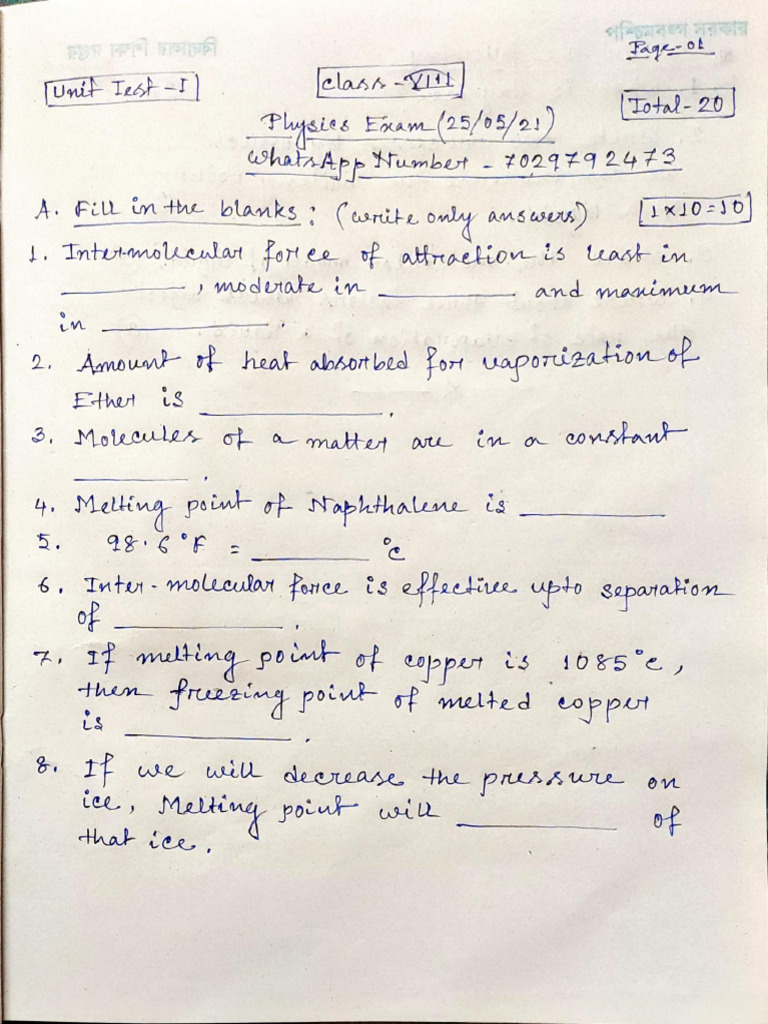 পশ্চিমবঙ্গ সরকার
বিদ্যালয় শিক্ষা দপ্তর
Page-01
Unit Test-I
Class-VIII
Total-20
Physics Exam (25/05/21)
WhatsApp Number - 7029792473
A. Fill in the blanks: (write only answers) 1×10=10
1. Inter-molecular force of attraction is least in
________, moderate in ________ and maximum
in ________.
2. Amount of heat absorbed for vaporization of
Ether is ________.
3. Molecules of a matter are in a constant
________.
4. Melting point of Naphthalene is ________
5. 98.6°F = ________ °C
6. Inter-molecular force is effective upto separation
of ________.
7. If melting point of copper is 1085°C,
then freezing point of melted copper
is ________.
8. If we will decrease the pressure on
ice, Melting point will ________ of
that ice.